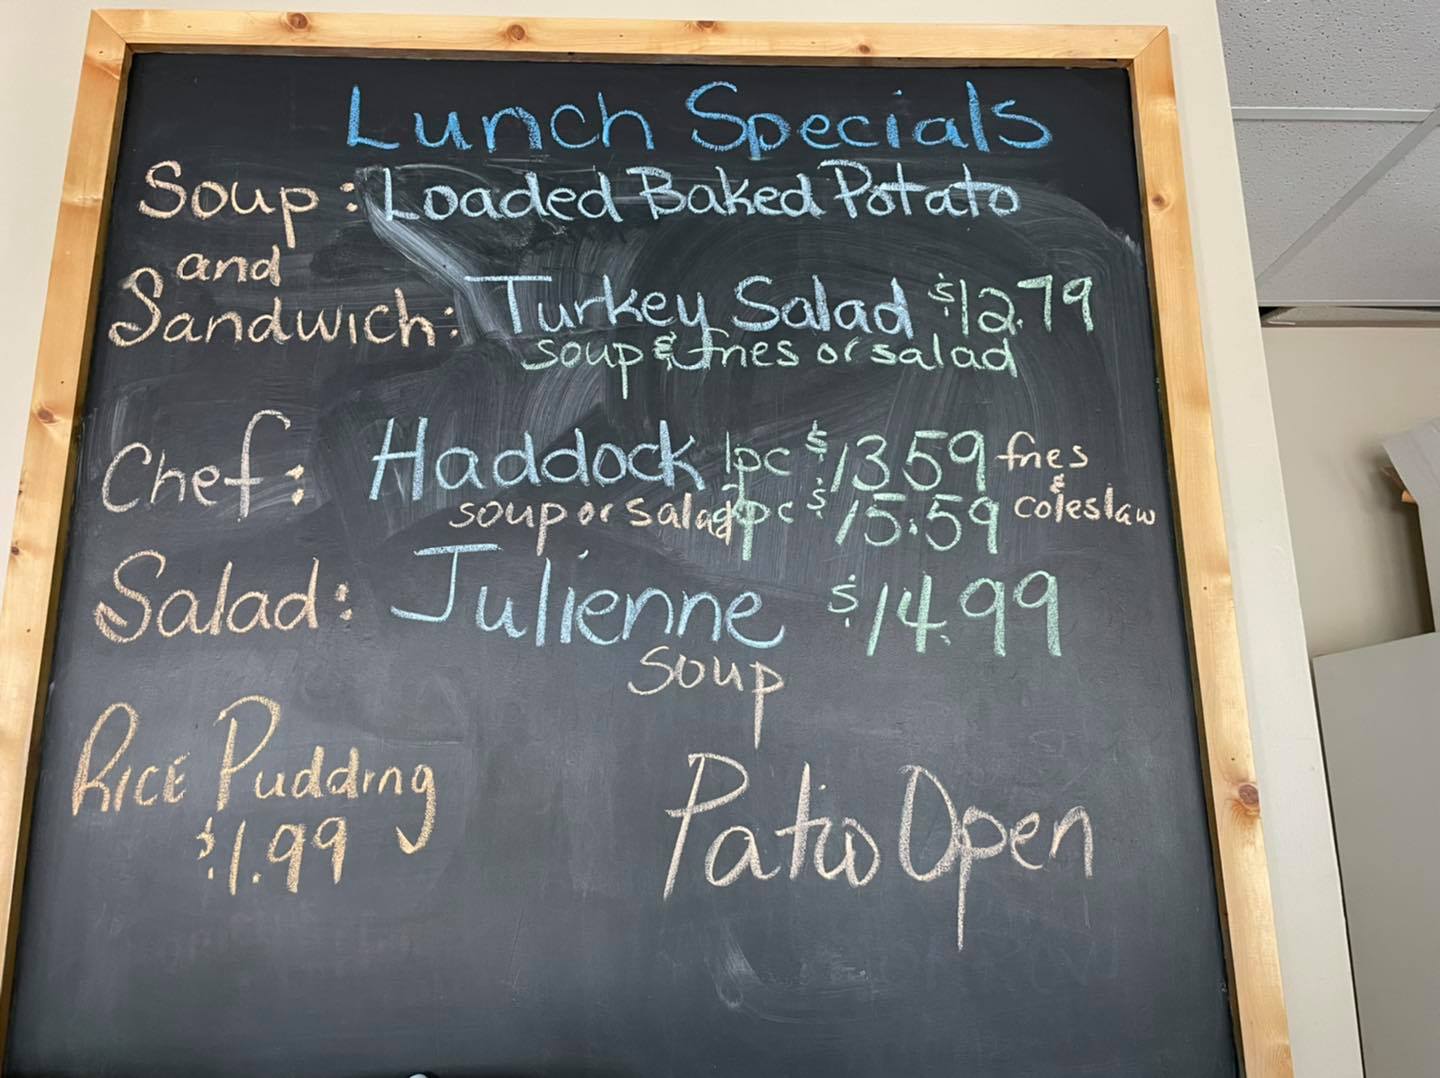 Lunch Specials
Soup: Loaded Baked Potato
and
Sandwich: Turkey Salad $12.79
soup & fries or salad
Chef: Haddock 1pc $13.59 fries
&
soup or salad pc $15.59 coleslaw
Salad: Julienne $14.99
soup
Rice Pudding
$1.99
Patio Open